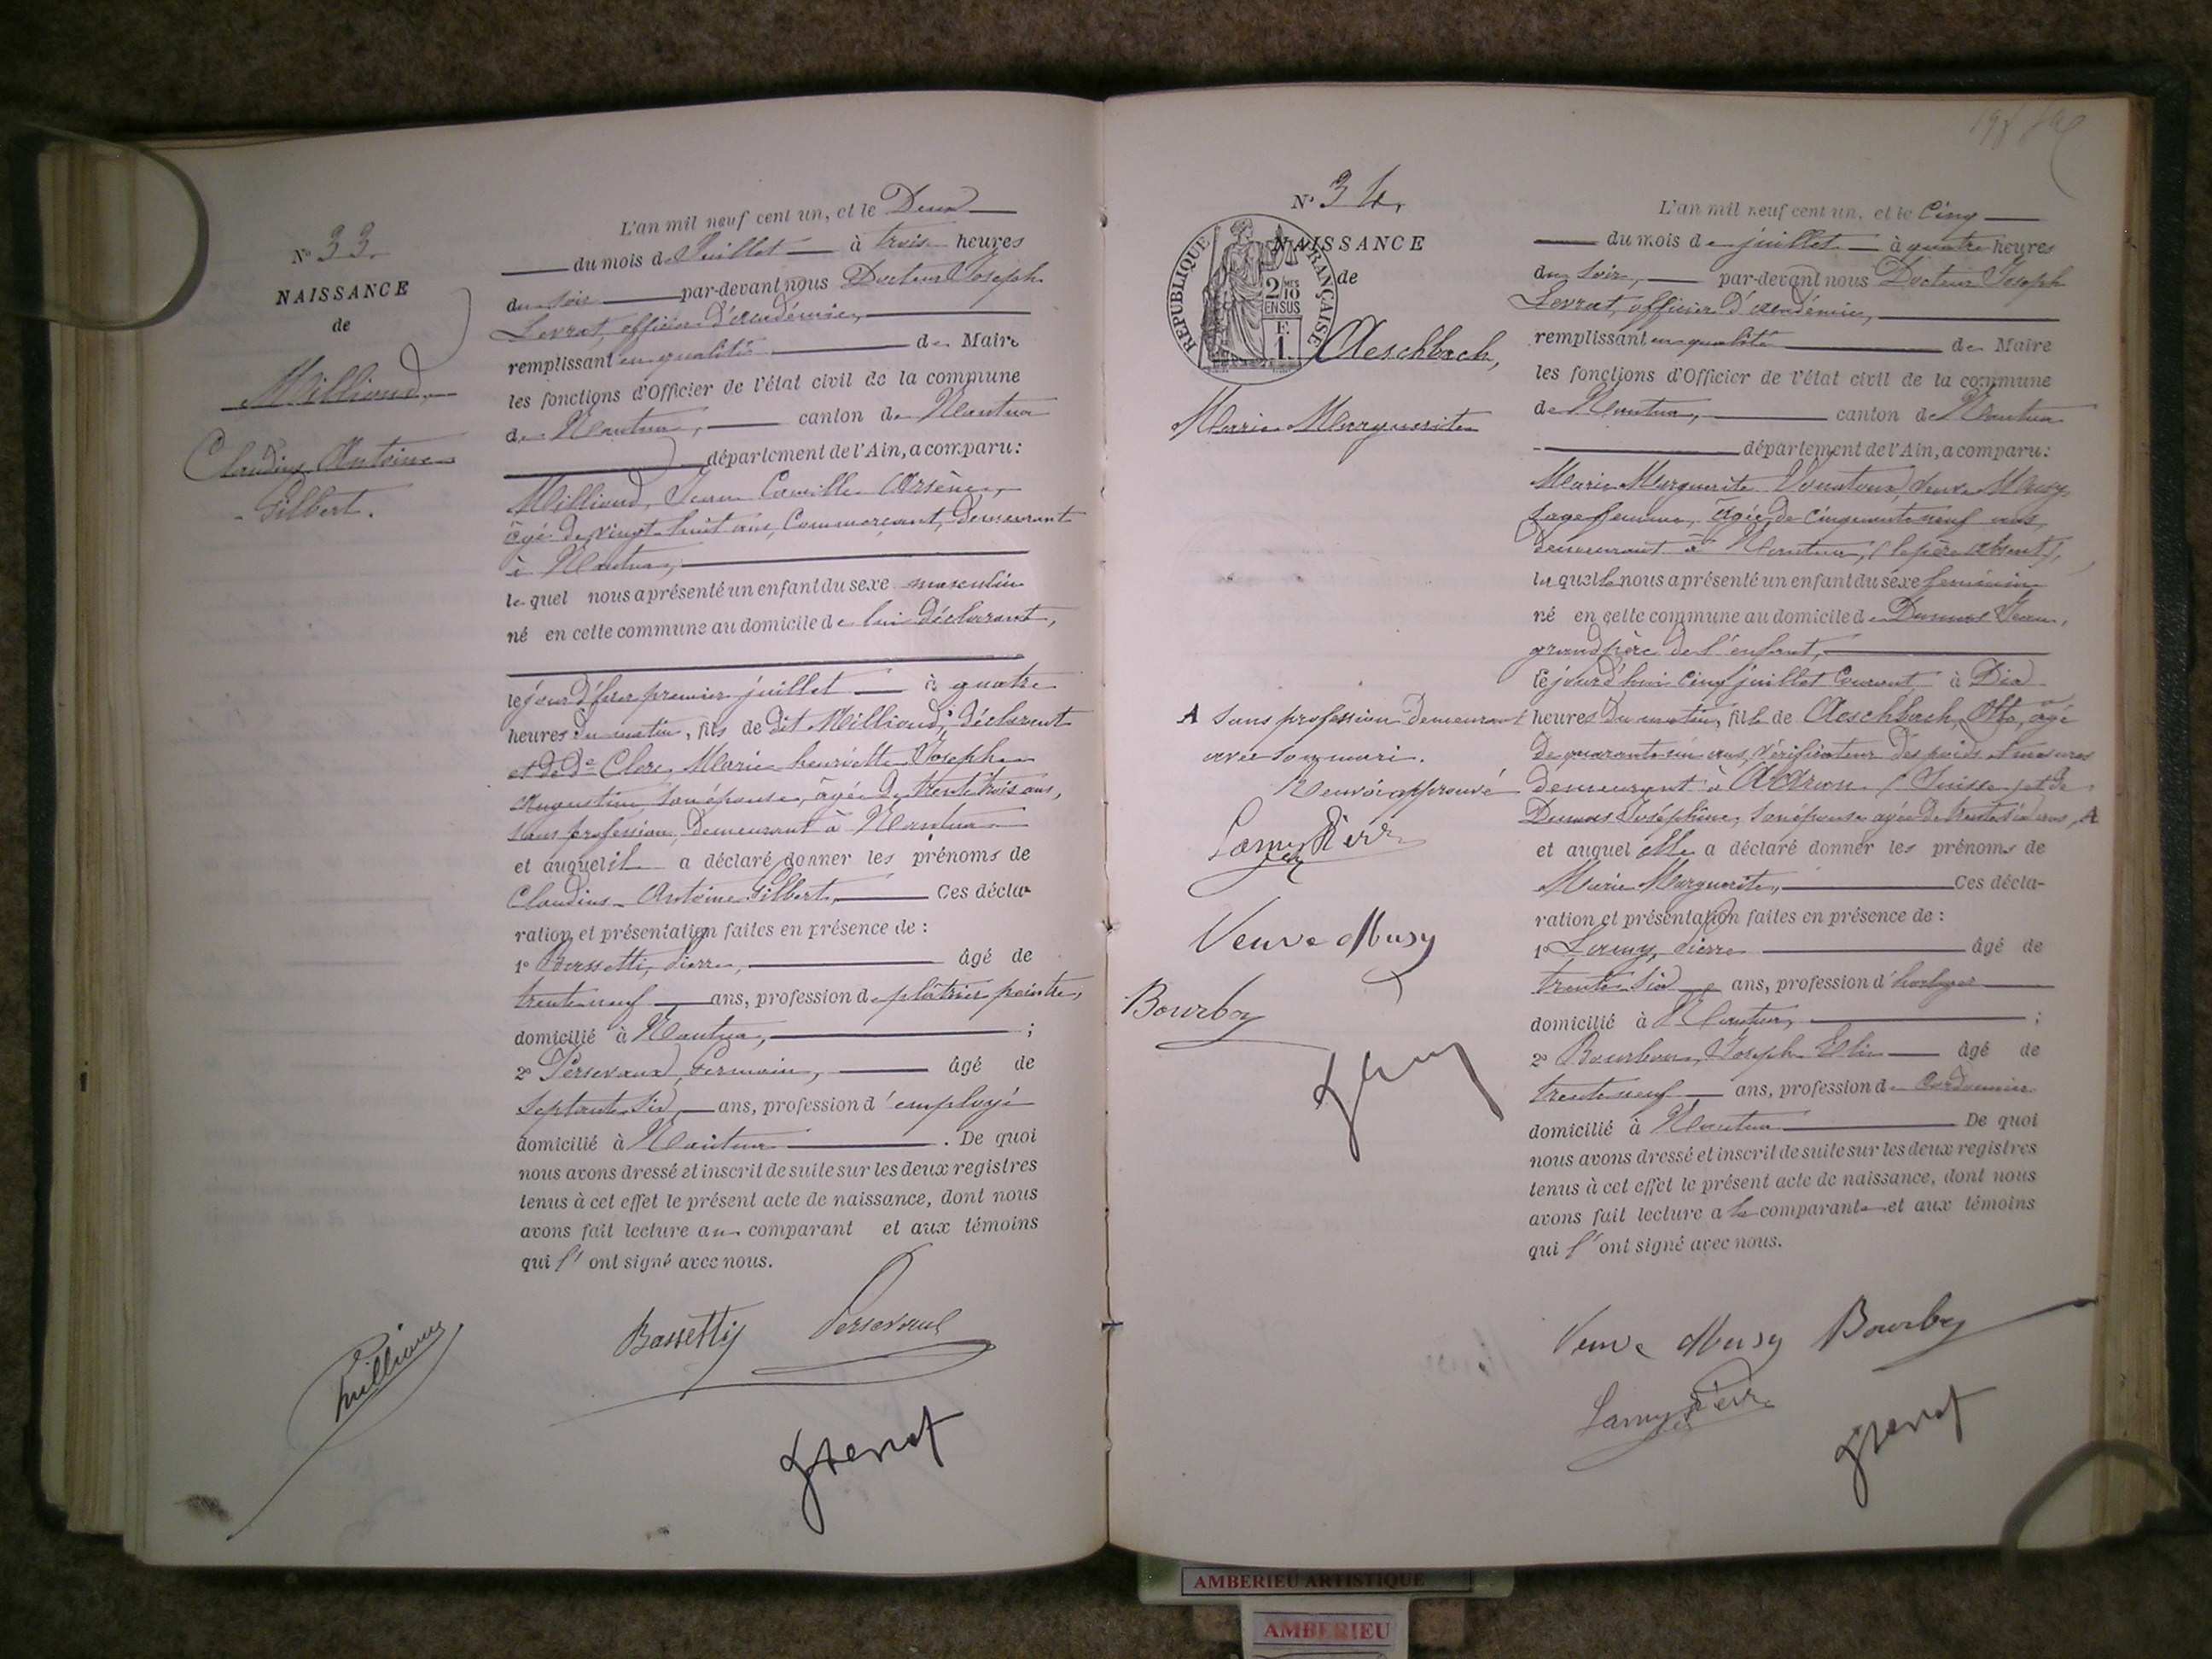 N° 33.
NAISSANCE
de
Milliand,
Claudius Antoine
Gilbert.
L'an mil neuf cent un, et le Deux
du mois de Juillet à trois heures
du soir par-devant nous Docteur Joseph
Levrat, officier d'académie,
remplissant en qualité de Maire
les fonctions d'Officier de l'état civil de la commune
de Nantua, canton de Nantua
département de l'Ain, a comparu :
Milliand, Jean Camille Arsène,
âgé de vingt huit ans, Commerçant, demeurant
à Nantua,
lequel nous a présenté un enfant du sexe masculin
né en cette commune au domicile de lui déclarant,
le jour d'hier premier juillet à quatre
heures du matin, fils de dit Milliand, déclarant
et de de Clerc, Marie henriette Josephe
Augustine son épouse, âgée de trente trois ans,
sans profession, demeurant à Nantua
et auquel il a déclaré donner les prénoms de
Claudius Antoine Gilbert, Ces décla-
ration et présentation faites en présence de :
1° Bassetti, Pierre, âgé de
trente neuf ans, profession de plâtrier peintre,
domicilié à Nantua, ;
2° Persevaux, Germain, âgé de
septante six, ans, profession d'employé
domicilié à Nantua . De quoi
nous avons dressé et inscrit de suite sur les deux registres
tenus à cet effet le présent acte de naissance, dont nous
avons fait lecture au comparant et aux témoins
qui l'ont signé avec nous.
Milliand
Bassetti
Persevaux
Levrat
N° 34.
NAISSANCE
de
RÉPUBLIQUE FRANÇAISE
2 MES 10
EN SUS
F.
1.
Aeschbach,
Marie Marguerite
A sans profession demeurant
avec son mari.
Renvoi approuvé
Lamy Pierre
Veuve Musy
Bourbon
L'an mil neuf cent un, et le Cinq
du mois de juillet à quatre heures
du soir, par-devant nous Docteur Joseph
Levrat, officier d'académie,
remplissant en qualité de Maire
les fonctions d'Officier de l'état civil de la commune
de Nantua, canton de Nantua
département de l'Ain, a comparu :
Marie Marguerite veuve Musy,
sage femme, âgée de cinquante neuf ans,
demeurant à Nantua, (le père absent),
laquelle nous a présenté un enfant du sexe féminin
né en cette commune au domicile de Dumas Jean,
grand père de l'enfant,
le jourd'hui cinq juillet courant à Dix
heures du matin, fille de Aeschbach, Otto, âgé
de quarante six ans, vérificateur des poids et mesures
demeurant à (Suisse) et de
Dumas Joséphine, son épouse âgée de trente six ans, A
et auquel elle a déclaré donner les prénoms de
Marie Marguerite, Ces décla-
ration et présentation faites en présence de :
1° Lamy, Pierre âgé de
trente six ans, profession d'horloger
domicilié à Nantua, ;
2° Bourbon, Joseph Elie âgé de
trente neuf ans, profession de Cordonnier
domicilié à Nantua De quoi
nous avons dressé et inscrit de suite sur les deux registres
tenus à cet effet le présent acte de naissance, dont nous
avons fait lecture à la comparante et aux témoins
qui l'ont signé avec nous.
Veuve Musy Bourbon
Lamy Pierre
Levrat
AMBERIEU ARTISTIQUE
AMBERIEU